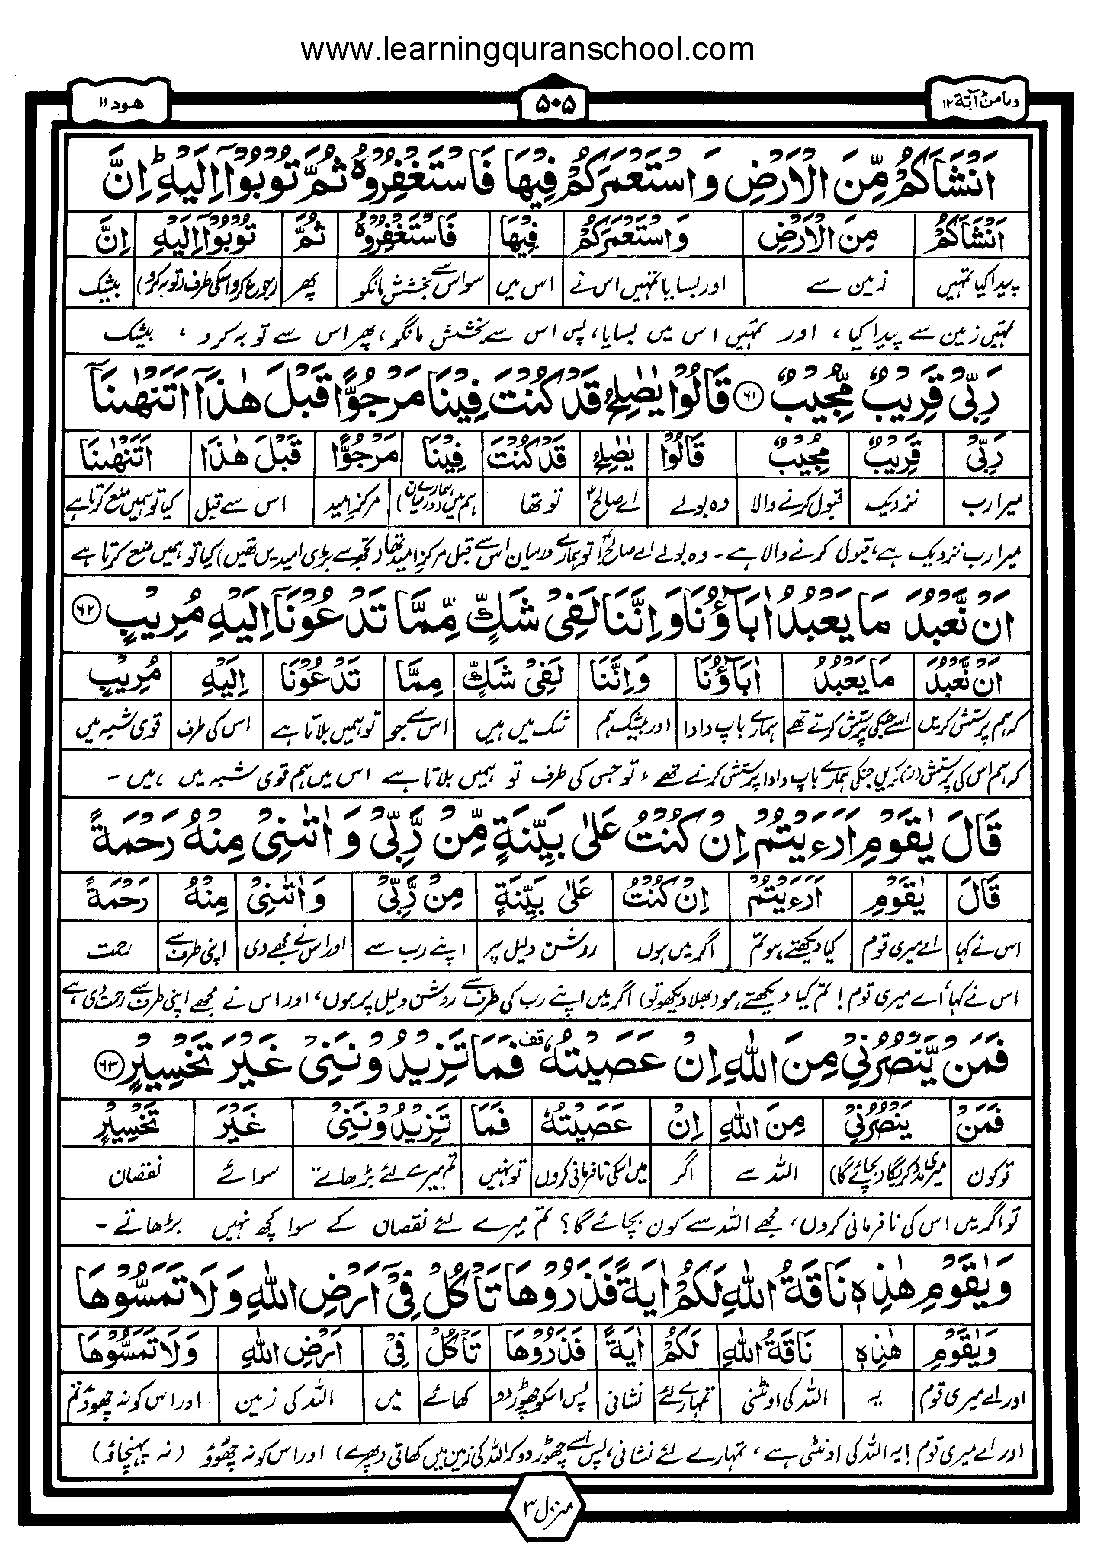 www.learningquranschool.com
ومامن آبة ١٢
۵۰۵
هود ۱۱
اَنْشَاَكُمْ مِّنَ الْاَرْضِ وَاسْتَعْمَرَكُمْ فِيْهَا فَاسْتَغْفِرُوْهُ ثُمَّ تُوْبُوْۤا اِلَيْهِ ؕ اِنَّ
اَنْشَاَكُمْ مِنَ الْاَرْضِ وَاسْتَعْمَرَكُمْ فِيْهَا فَاسْتَغْفِرُوْهُ ثُمَّ تُوْبُوْۤا اِلَيْهِ اِنَّ
پیدا کیا تمہیں زمین سے اور بسایا تمہیں اس نے اس میں سو اس سے بخشش مانگو پھر رجوع کرو اسکی طرف (توبہ کرو) بیشک
تمہیں زمین سے پیدا کیا ، اور تمہیں اس میں بسایا، پس اس سے بخشش مانگو، پھر اس سے توبہ کرو ، بیشک
رَبِّىْ قَرِيْبٌ مُّجِيْبٌ ۶۱ قَالُوْا يٰصٰلِحُ قَدْ كُنْتَ فِيْنَا مَرْجُوًّا قَبْلَ هٰذَاۤ اَتَنْهٰىنَاۤ
رَبِّىْ قَرِيْبٌ مُّجِيْبٌ قَالُوْا يٰصٰلِحُ قَدْ كُنْتَ فِيْنَا مَرْجُوًّا قَبْلَ هٰذَا اَتَنْهٰىنَا
میرا رب نزدیک قبول کرنے والا وہ بولے اے صالحؑ تو تھا ہم میں (ہمارے درمیان) مرکز امید اس سے قبل کیا تو ہمیں منع کرتا ہے
میرا رب نزدیک ہے، قبول کرنے والا ہے۔ وہ بولے اے صالحؑ! تو ہمارے درمیان اس سے قبل مرکز امید تھا (تجھ سے بڑی امیدیں تھیں) کیا تو ہمیں منع کرتا ہے
اَنْ نَّعْبُدَ مَا يَعْبُدُ اٰبَآؤُنَا وَاِنَّنَا لَفِىْ شَكٍّ مِّمَّا تَدْعُوْنَاۤ اِلَيْهِ مُرِيْبٍ ۶۲
اَنْ نَّعْبُدَ مَا يَعْبُدُ اٰبَآؤُنَا وَاِنَّنَا لَفِىْ شَكٍّ مِمَّا تَدْعُوْنَا اِلَيْهِ مُرِيْبٍ
کہ ہم پرستش کریں اسے جسکی پرستش کرتے تھے ہمارے باپ دادا اور بیشک ہم شک میں ہیں اس سے جو تو ہمیں بلاتا ہے اس کی طرف قوی شبہ میں
کہ ہم اس کی پرستش (نہ) کریں جنکی ہمارے باپ دادا پرستش کرتے تھے ، تو جس کی طرف تو ہمیں بلاتا ہے اس میں ہم قوی شبہ میں ہیں۔
قَالَ يٰقَوْمِ اَرَءَيْتُمْ اِنْ كُنْتُ عَلٰى بَيِّنَةٍ مِّنْ رَّبِّىْ وَاٰتٰىنِىْ مِنْهُ رَحْمَةً
قَالَ يٰقَوْمِ اَرَءَيْتُمْ اِنْ كُنْتُ عَلٰى بَيِّنَةٍ مِنْ رَّبِّىْ وَاٰتٰىنِىْ مِنْهُ رَحْمَةً
اس نے کہا اے میری قوم کیا دیکھتے ہو تم اگر میں ہوں روشن دلیل پر اپنے رب سے اور اس نے مجھے دی اپنی طرف سے رحمت
اس نے کہا، اے میری قوم! تم کیا دیکھتے ہو (بھلا دیکھو تو) اگر میں اپنے رب کی طرف سے روشن دلیل پر ہوں، اور اس نے مجھے اپنی طرف سے رحمت دی ہے
فَمَنْ يَّنْصُرُنِىْ مِنَ اللّٰهِ اِنْ عَصَيْتُهٗ قف فَمَا تَزِيْدُوْنَنِىْ غَيْرَ تَخْسِيْرٍ ۶۳
فَمَنْ يَنْصُرُنِىْ مِنَ اللّٰهِ اِنْ عَصَيْتُهٗ فَمَا تَزِيْدُوْنَنِىْ غَيْرَ تَخْسِيْرٍ
تو کون میری مدد کریگا (بچائے گا) اللہ سے اگر میں اسکی نافرمانی کروں تو نہیں تم میرے لئے بڑھاتے سوائے نقصان
تو اگر میں اس کی نافرمانی کروں، مجھے اللہ سے کون بچائے گا؟ تم میرے لئے نقصان کے سوا کچھ نہیں بڑھاتے۔
وَيٰقَوْمِ هٰذِهٖ نَاقَةُ اللّٰهِ لَكُمْ اٰيَةً فَذَرُوْهَا تَاْكُلْ فِىْۤ اَرْضِ اللّٰهِ وَلَا تَمَسُّوْهَا
وَيٰقَوْمِ هٰذِهٖ نَاقَةُ اللّٰهِ لَكُمْ اٰيَةً فَذَرُوْهَا تَاْكُلْ فِىْ اَرْضِ اللّٰهِ وَلَا تَمَسُّوْهَا
اور اے میری قوم یہ اللہ کی اونٹنی تمہارے لئے نشانی پس اسکو چھوڑ دو کھائے میں اللہ کی زمین اور اس کو نہ چھوؤ تم
اور اے میری قوم! یہ اللہ کی اونٹنی ہے، تمہارے لئے نشانی، پس اسے چھوڑ دو کہ اللہ کی زمین میں کھاتی (پھرے) اور اس کو نہ چھوؤ (نہ پہنچاؤ)
منزل ۳